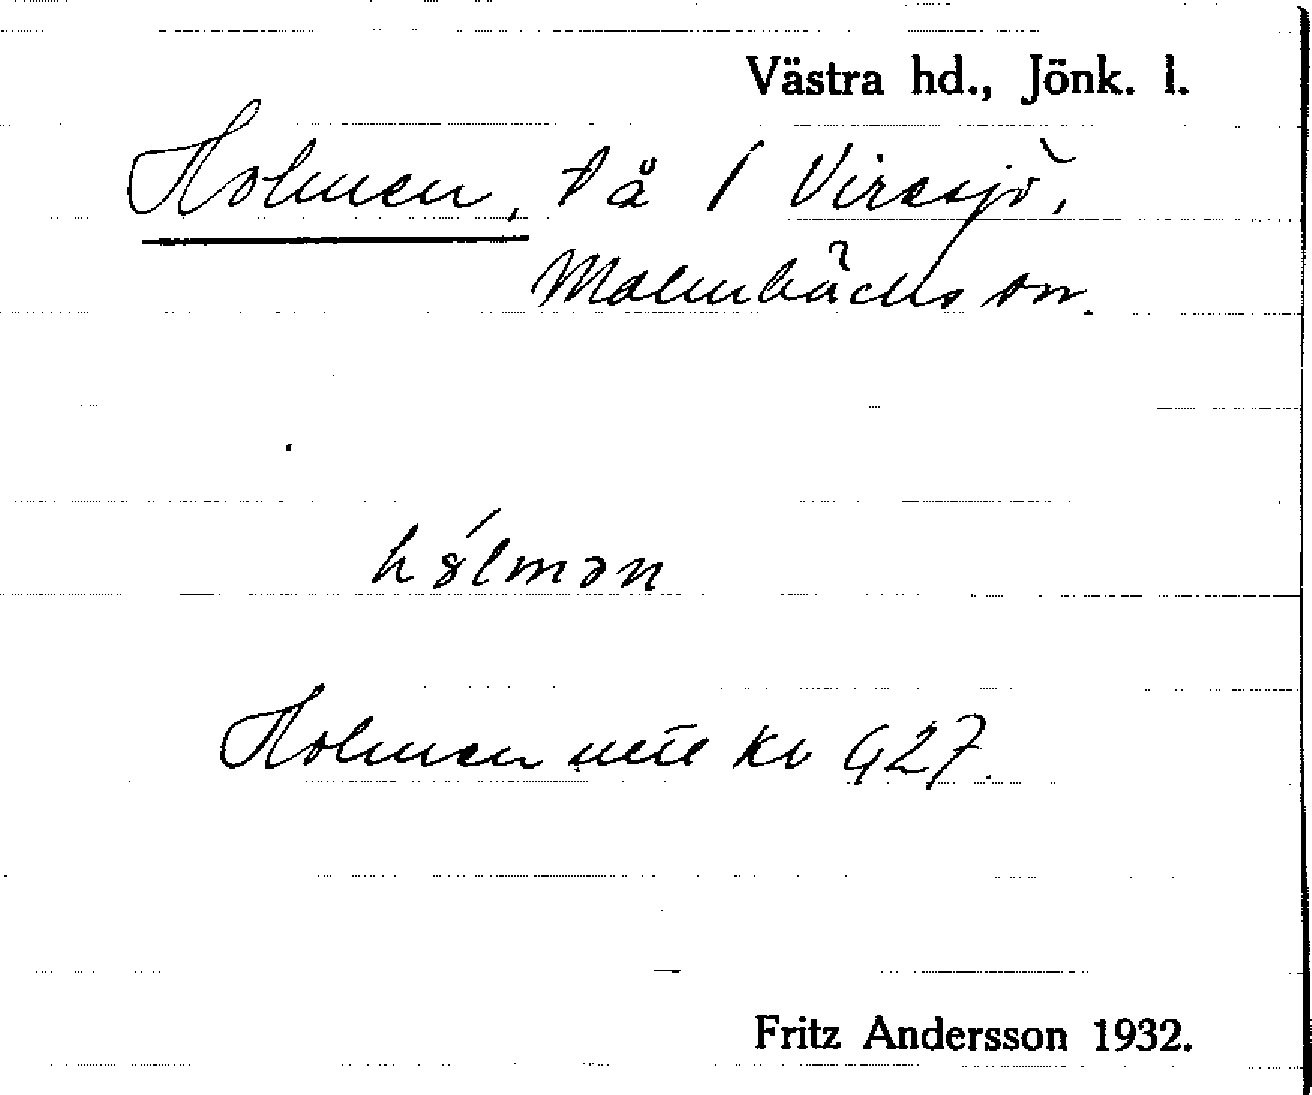 Västra hd., Jönk. l.
Holmen, t å / Viresjö,
Malmbäcks sn.
hólmən
Holmen uttl Kv 927.
Fritz Andersson 1932.